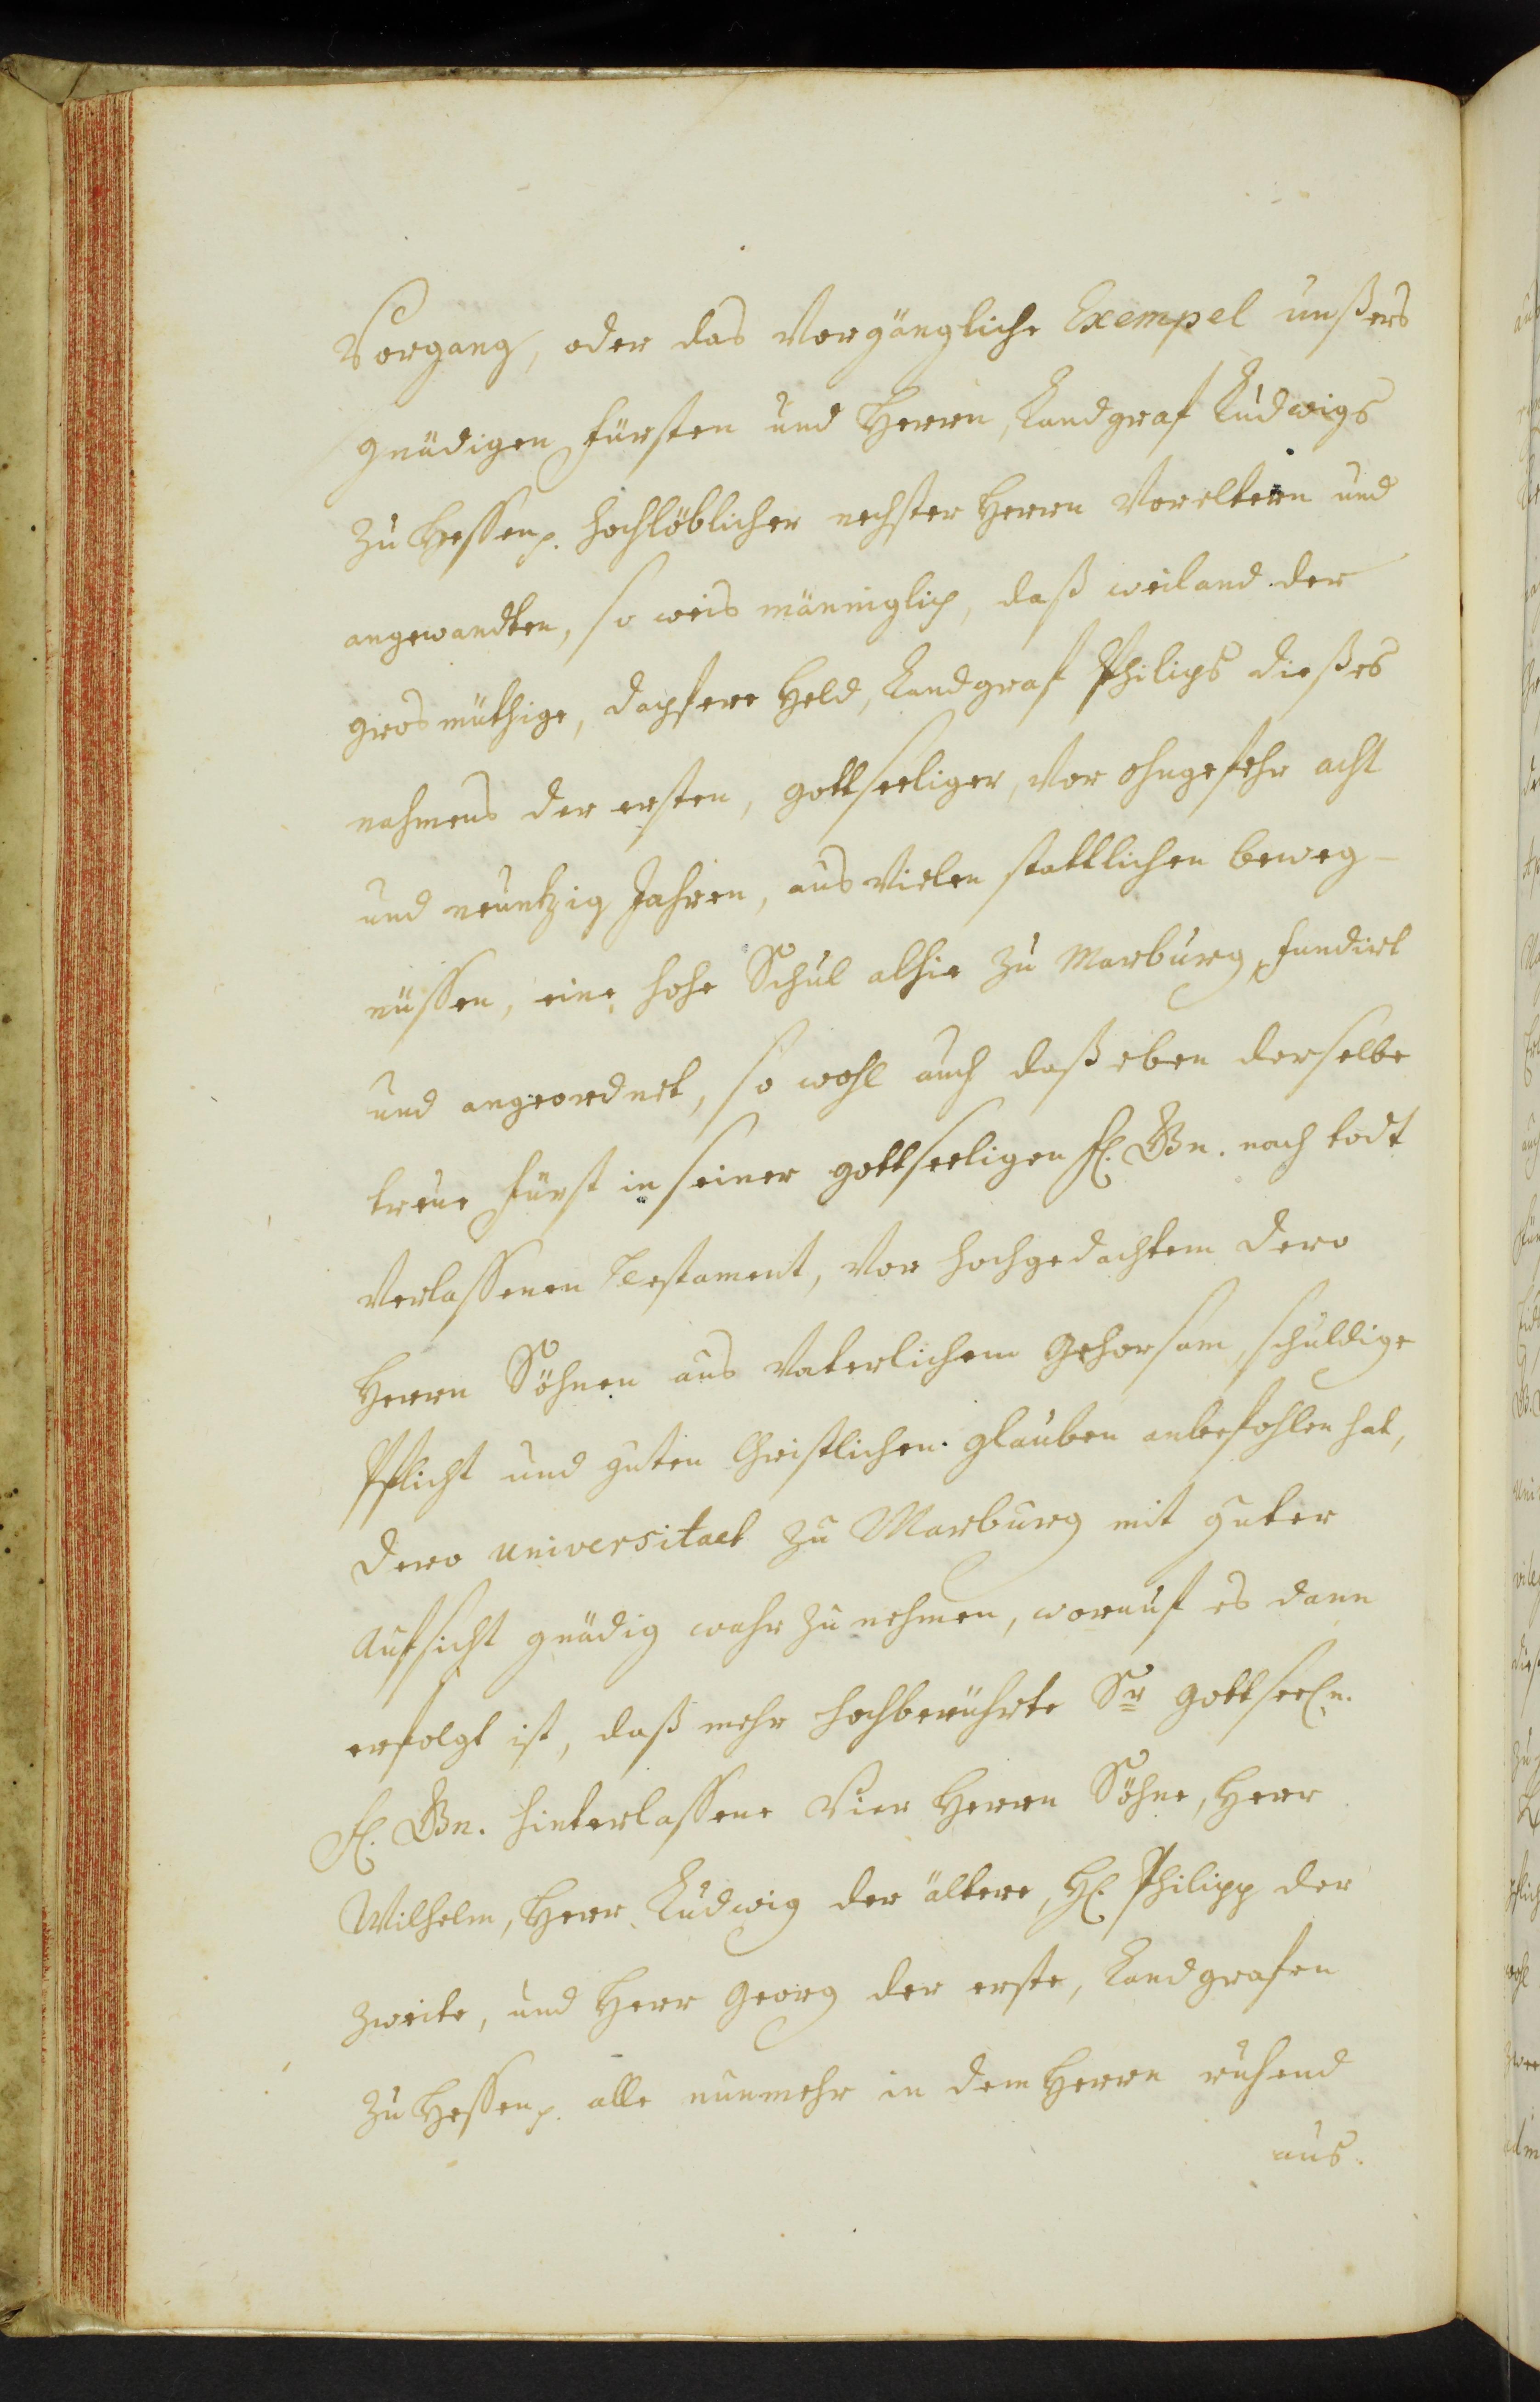 Vorgang, oder das Vorgängliche Exempel unßers
gnädigen fürsten und Herrn, Landgraf Ludwigs
zu Hessen p. hochlöblicher nechster Herrn Voreltern und
angewandten, so weis männiglich, daß weiland der
grosmüthige, dapfere Held, Landgraf Philips dießes
nahmens der ersten, gottseeliger, Vor ohngefehr acht
und neuntzig Jahren, aus Vielen stattlichen beweg-
nüssen, eine hohe Schul alhie zu Marburg, fundirt
und angeordnet, so wohl auch daß eben derselbe
treue fürst in seiner gottseeligen fl. Gn. nach todt
Verlassenen Testament, Vor hochgedachtem dero
Herrn Söhnen aus Vaterlichem Gehorsam, schuldige
Pflicht und guten Christlichen glauben anbefohlen hat,
dero universitaet zu Marburg mit guter
Aufsicht gnädig wahr zu nehmen, worauf es dann
erfolgt ist, daß mehr hochberührte Sr gottseeln.
fl. Gn. hinterlassene Vier Herrn Söhne, Herr
Wilhelm, Herr Ludwig der ältere, Hl. Philipp der
zweite, und Herr Georg der erste, Landgrafen
zu Hessen p. alle nunmehr in dem Herrn ruhend
aus.